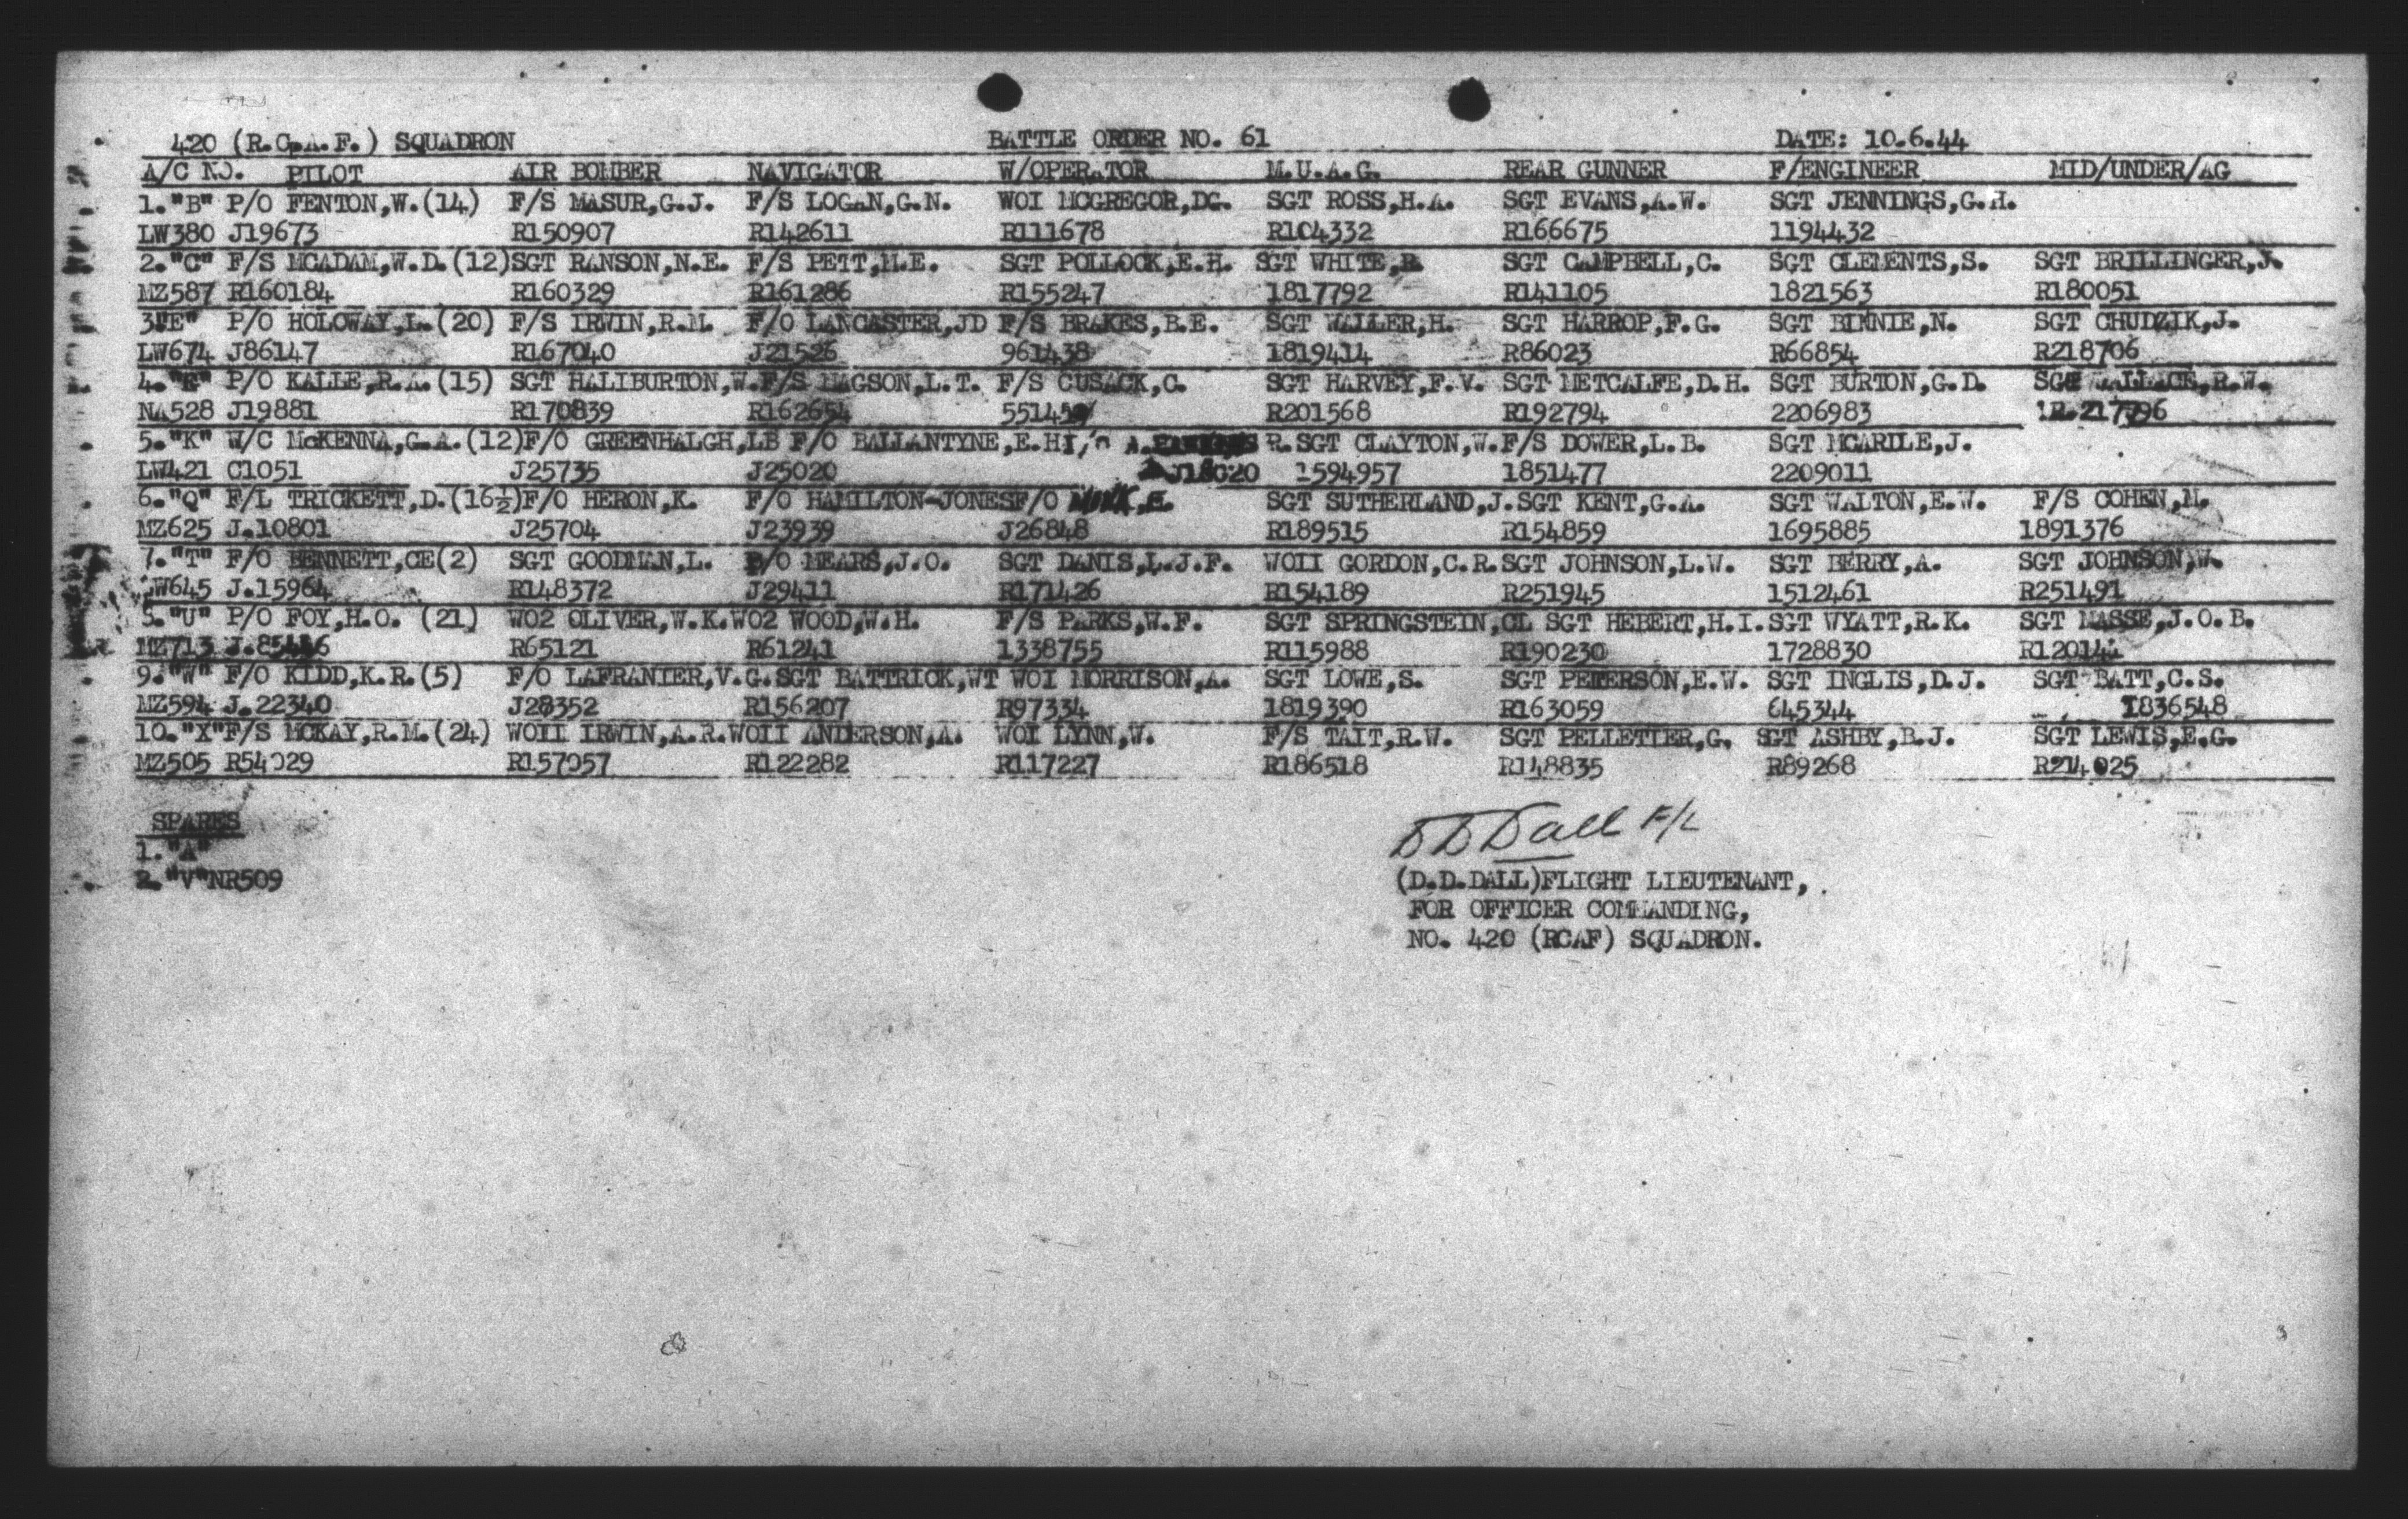 420 (R.C.A.F.) SQUADRON BATTLE ORDER NO. 61 DATE: 10.6.44
A/C NO. PILOT AIR BOMBER NAVIGATOR W/OPERATOR M.U.A.G. REAR GUNNER F/ENGINEER MID/UNDER/AG
1."B" P/O FENTON,W.(14) F/S MASUR,G.J. F/S LOGAN,G.N. WOI MCGREGOR,DG. SGT ROSS,H.A. SGT EVANS,A.W. SGT JENNINGS,G.H.
LW380 J19673 R150907 R142611 R111678 R104332 R166675 1194432
2."C" F/S MCADAM,W.D.(12)SGT RANSON,N.E. F/S PETT,M.E. SGT POLLOCK,E.H. SGT WHITE,R SGT CAMPBELL,C. SGT CLEMENTS,S. SGT BRILLINGER,J.
MZ587 R160184 R160329 R161286 R155247 1817792 R141105 1821563 R180051
3."E" P/O HOLOWAY,L.(20) F/S IRWIN,R.M. F/O LANCASTER,JD F/S BRAKES,B.E. SGT WALLER,H. SGT HARROP,F.G. SGT BINNIE,N. SGT CHUDZIK,J.
LW674 J86147 R167040 J21526 961438 1819414 R86023 R66854 R218706
4. P/O KALLE,R.A.(15) SGT HALIBURTON,W.F/S MAGSON,L.T. F/S CUSACK,C. SGT HARVEY,F.V. SGT METCALFE,D.H. SGT BURTON,G.D. SGT WALLACE,R.W.
NA528 J19881 R170839 R162654 R201568 R192794 2206983 R.217796
5."K" W/C McKENNA,G.A.(12)F/O GREENHALGH,LB F/O BALLANTYNE,E.H R.SGT CLAYTON,W.F/S DOWER,L.B. SGT MCARILE,J.
LW421 C1051 J25735 J25020 J18020 1594957 1851477 2209011
6."Q" F/L TRICKETT,D.(16½)F/O HERON,K. F/O HAMILTON-JONESF/O SGT SUTHERLAND,J.SGT KENT,G.A. SGT WALTON,E.W. F/S COHEN,M.
MZ625 J.10801 J25704 J23939 J26848 R189515 R154859 1695885 1891376
7."T" F/O BENNETT,CE(2) SGT GOODMAN,L. P/O MEARS,J.O. SGT DANIS,L.J.F. WOII GORDON,C.R.SGT JOHNSON,L.W. SGT BERRY,A. SGT JOHNSON,W.
LW645 J.15964 R148372 J29411 R171426 R154189 R251945 1512461 R251491
"U" P/O FOY,H.O. (21) WO2 OLIVER,W.K.WO2 WOOD,W.H. F/S PARKS,W.F. SGT SPRINGSTEIN,CL SGT HEBERT,H.I.SGT WYATT,R.K. SGT MASSE,J.O.B.
MZ713 R65121 R61241 1338755 R115988 R190230 1728830
9."W" F/O KIDD,K.R.(5) F/O LAFRANIER,V.G.SGT BATTRICK,WT WOI MORRISON,A. SGT LOWE,S. SGT PETERSON,E.W. SGT INGLIS,D.J. SGT BATT,C.S.
MZ594 J.22340 J28352 R156207 R97334 1819390 R163059 645344 1836548
10."X"F/S MCKAY,R.M.(24) WOII IRWIN,A.R.WOII ANDERSON,A. WOI LYNN,W. F/S TAIT,R.W. SGT PELLETIER,G. SGT ASHBY,B.J. SGT LEWIS,E.G.
MZ505 R54029 R157057 R122282 R117227 R186518 R148835 R89268 R214025
SPARES
1."A"
2."V"NR509
D D Dall F/L
(D.D.DALL)FLIGHT LIEUTENANT,
FOR OFFICER COMMANDING,
NO. 420 (RCAF) SQUADRON.